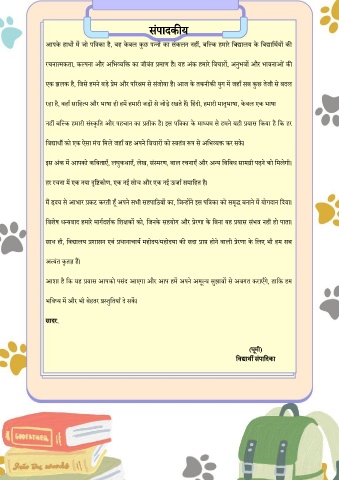 संपादकीय
आपके हाथों में जो पत्रिका है, वह केवल कुछ पन्नों का संकलन नहीं, बल्कि हमारे विद्यालय के विद्यार्थियों की
रचनात्मकता, कल्पना और अभिव्यक्ति का जीवंत प्रमाण है। यह अंक हमारे विचारों, अनुभवों और भावनाओं की
एक झलक है, जिसे हमने बड़े प्रेम और परिश्रम से संजोया है। आज के तकनीकी युग में जहाँ सब कुछ तेजी से बदल
रहा है, वहाँ साहित्य और भाषा ही हमें हमारी जड़ों से जोड़े रखते हैं। हिंदी, हमारी मातृभाषा, केवल एक भाषा
नहीं बल्कि हमारी संस्कृति और पहचान का प्रतीक है। इस पत्रिका के माध्यम से हमने यही प्रयास किया है कि हर
विद्यार्थी को एक ऐसा मंच मिले जहाँ वह अपने विचारों को स्वतंत्र रूप से अभिव्यक्त कर सके।
इस अंक में आपको कविताएँ, लघुकथाएँ, लेख, संस्मरण, बाल रचनाएँ और अन्य विविध सामग्री पढ़ने को मिलेगी।
हर रचना में एक नया दृष्टिकोण, एक नई सोच और एक नई ऊर्जा समाहित है।
मैं हृदय से आभार प्रकट करती हूँ अपने सभी सहपाठियों का, जिन्होंने इस पत्रिका को समृद्ध बनाने में योगदान दिया।
विशेष धन्यवाद हमारे मार्गदर्शक शिक्षकों को, जिनके सहयोग और प्रेरणा के बिना यह प्रयास संभव नहीं हो पाता।
साथ ही, विद्यालय प्रशासन एवं प्रधानाचार्य महोदय/महोदया की सदा प्राप्त होने वाली प्रेरणा के लिए भी हम सब
अत्यंत कृतज्ञ हैं।
आशा है कि यह प्रयास आपको पसंद आएगा और आप हमें अपने अमूल्य सुझावों से अवगत कराएँगे, ताकि हम
भविष्य में और भी बेहतर प्रस्तुतियाँ दे सकें।
सादर,
विद्यार्थी संपादिका
LITERATURE
Into the words